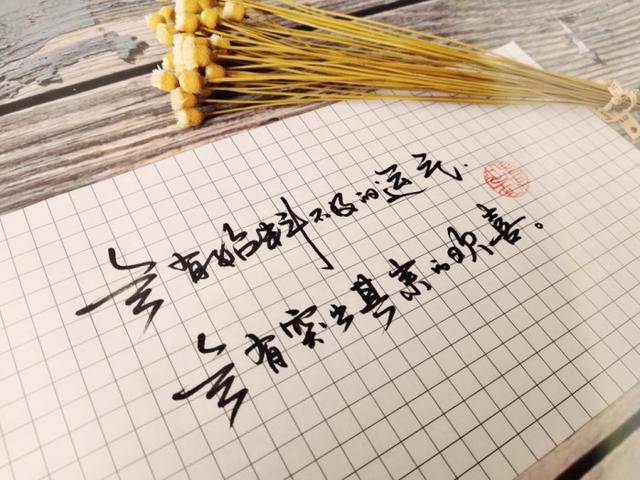 会有始料不及的运气.
会有突如其来的欢喜。